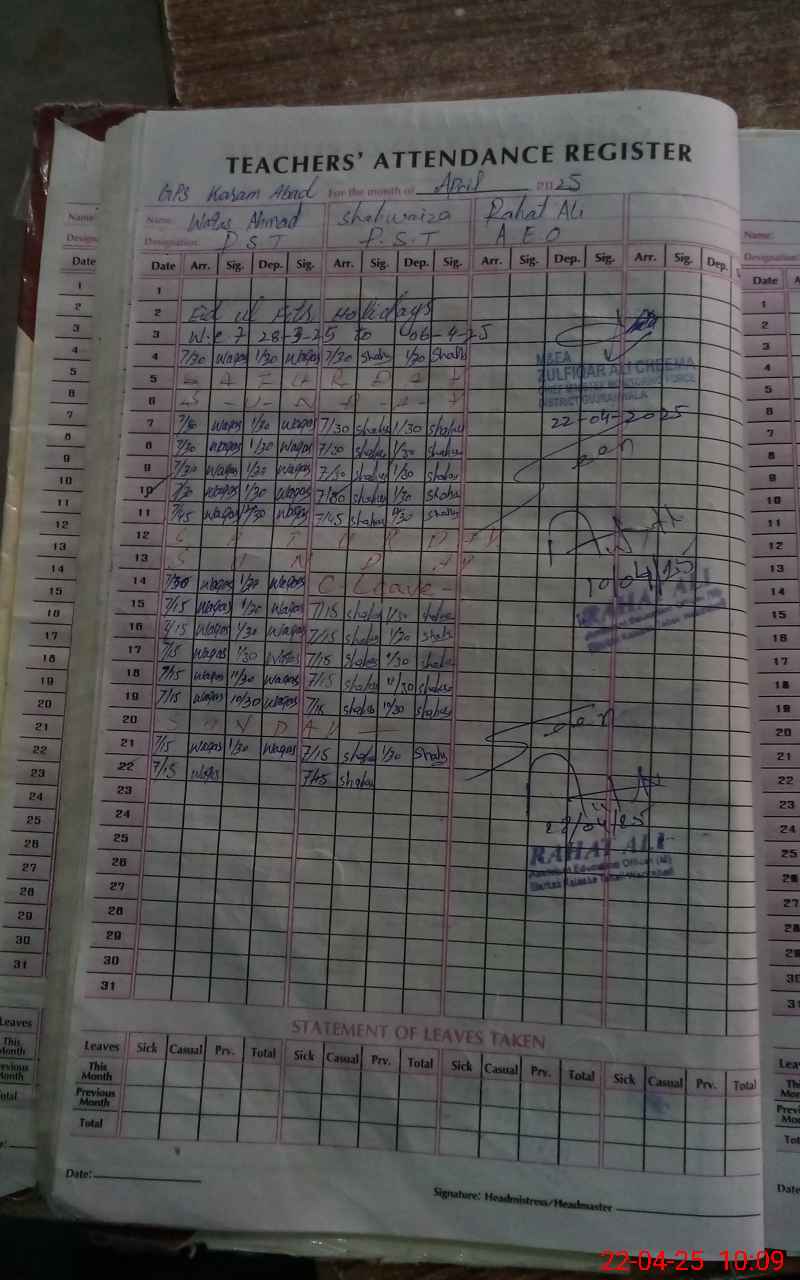 TEACHERS' ATTENDANCE REGISTER
GPS Karam Abad For the month of April 2025
Name: Waqas Ahmad Shahwaiza Rahat Ali
Designation: P.S.T P.S.T AEO
Date Arr. Sig. Dep. Sig. Arr. Sig. Dep. Sig. Arr. Sig. Dep. Sig. Arr. Sig. Dep.
1
2 Eid ul Fitr Holidays
3 W.e.f 28-3-25 to 06-4-25
4 7/30 Waqas 1/30 Waqas 7/30 Shahw 1/30 Shahw
5 S A T U R D A Y
6 S - U - N - D - A - Y
7 7/30 Waqas 1/30 Waqas 7/30 Shahw 1/30 Shahw
8 7/30 Waqas 1/30 Waqas 7/30 Shahw 1/30 Shahw
9 7/30 Waqas 1/30 Waqas 7/30 Shahw 1/30 Shahw
10 7/30 Waqas 1/30 Waqas 7/30 Shahw 1/30 Shahw
11 7/45 Waqas Waqas 7/45 Shahw Shahw
12 S A T U R D A Y
13 S U N D A Y
14 7/30 Waqas 1/30 Waqas C-Leave-
15 7/15 Waqas 1/30 Waqas 7/15 Shahw 1/30 Shahw
16 7/15 Waqas 1/30 Waqas 7/15 Shahw 1/30 Shahw
17 7/15 Waqas 1/30 Waqas 7/15 Shahw 1/30 Shahw
18 7/15 Waqas 11/30 Waqas 7/15 Shahw 11/30 Shahw
19 7/15 Waqas 10/30 Waqas 7/15 Shahw 10/30 Shahw
20 S U N D A Y
21 7/15 Waqas 1/30 Waqas 7/15 Shahw 1/30 Shahw
22 7/15 Waqas 7/15 Shahw
23
24
25
26
27
28
29
30
31
MEA
ZULFIQAR ALI CHEEMA
CHIEF MINISTER MONITORING FORCE
DISTRICT GUJRANWALA
22-04-2025
Seen
10/04/25
RAHAT ALI
Seen
22/04/25
RAHAT ALI
Assistant Education Officer (M)
STATEMENT OF LEAVES TAKEN
Leaves Sick Casual Prv. Total Sick Casual Prv. Total Sick Casual Prv. Total Sick Casual Prv. Total
This Month
Previous Month
Total
Date:
Signature: Headmistress/Headmaster
22-04-25 10:09